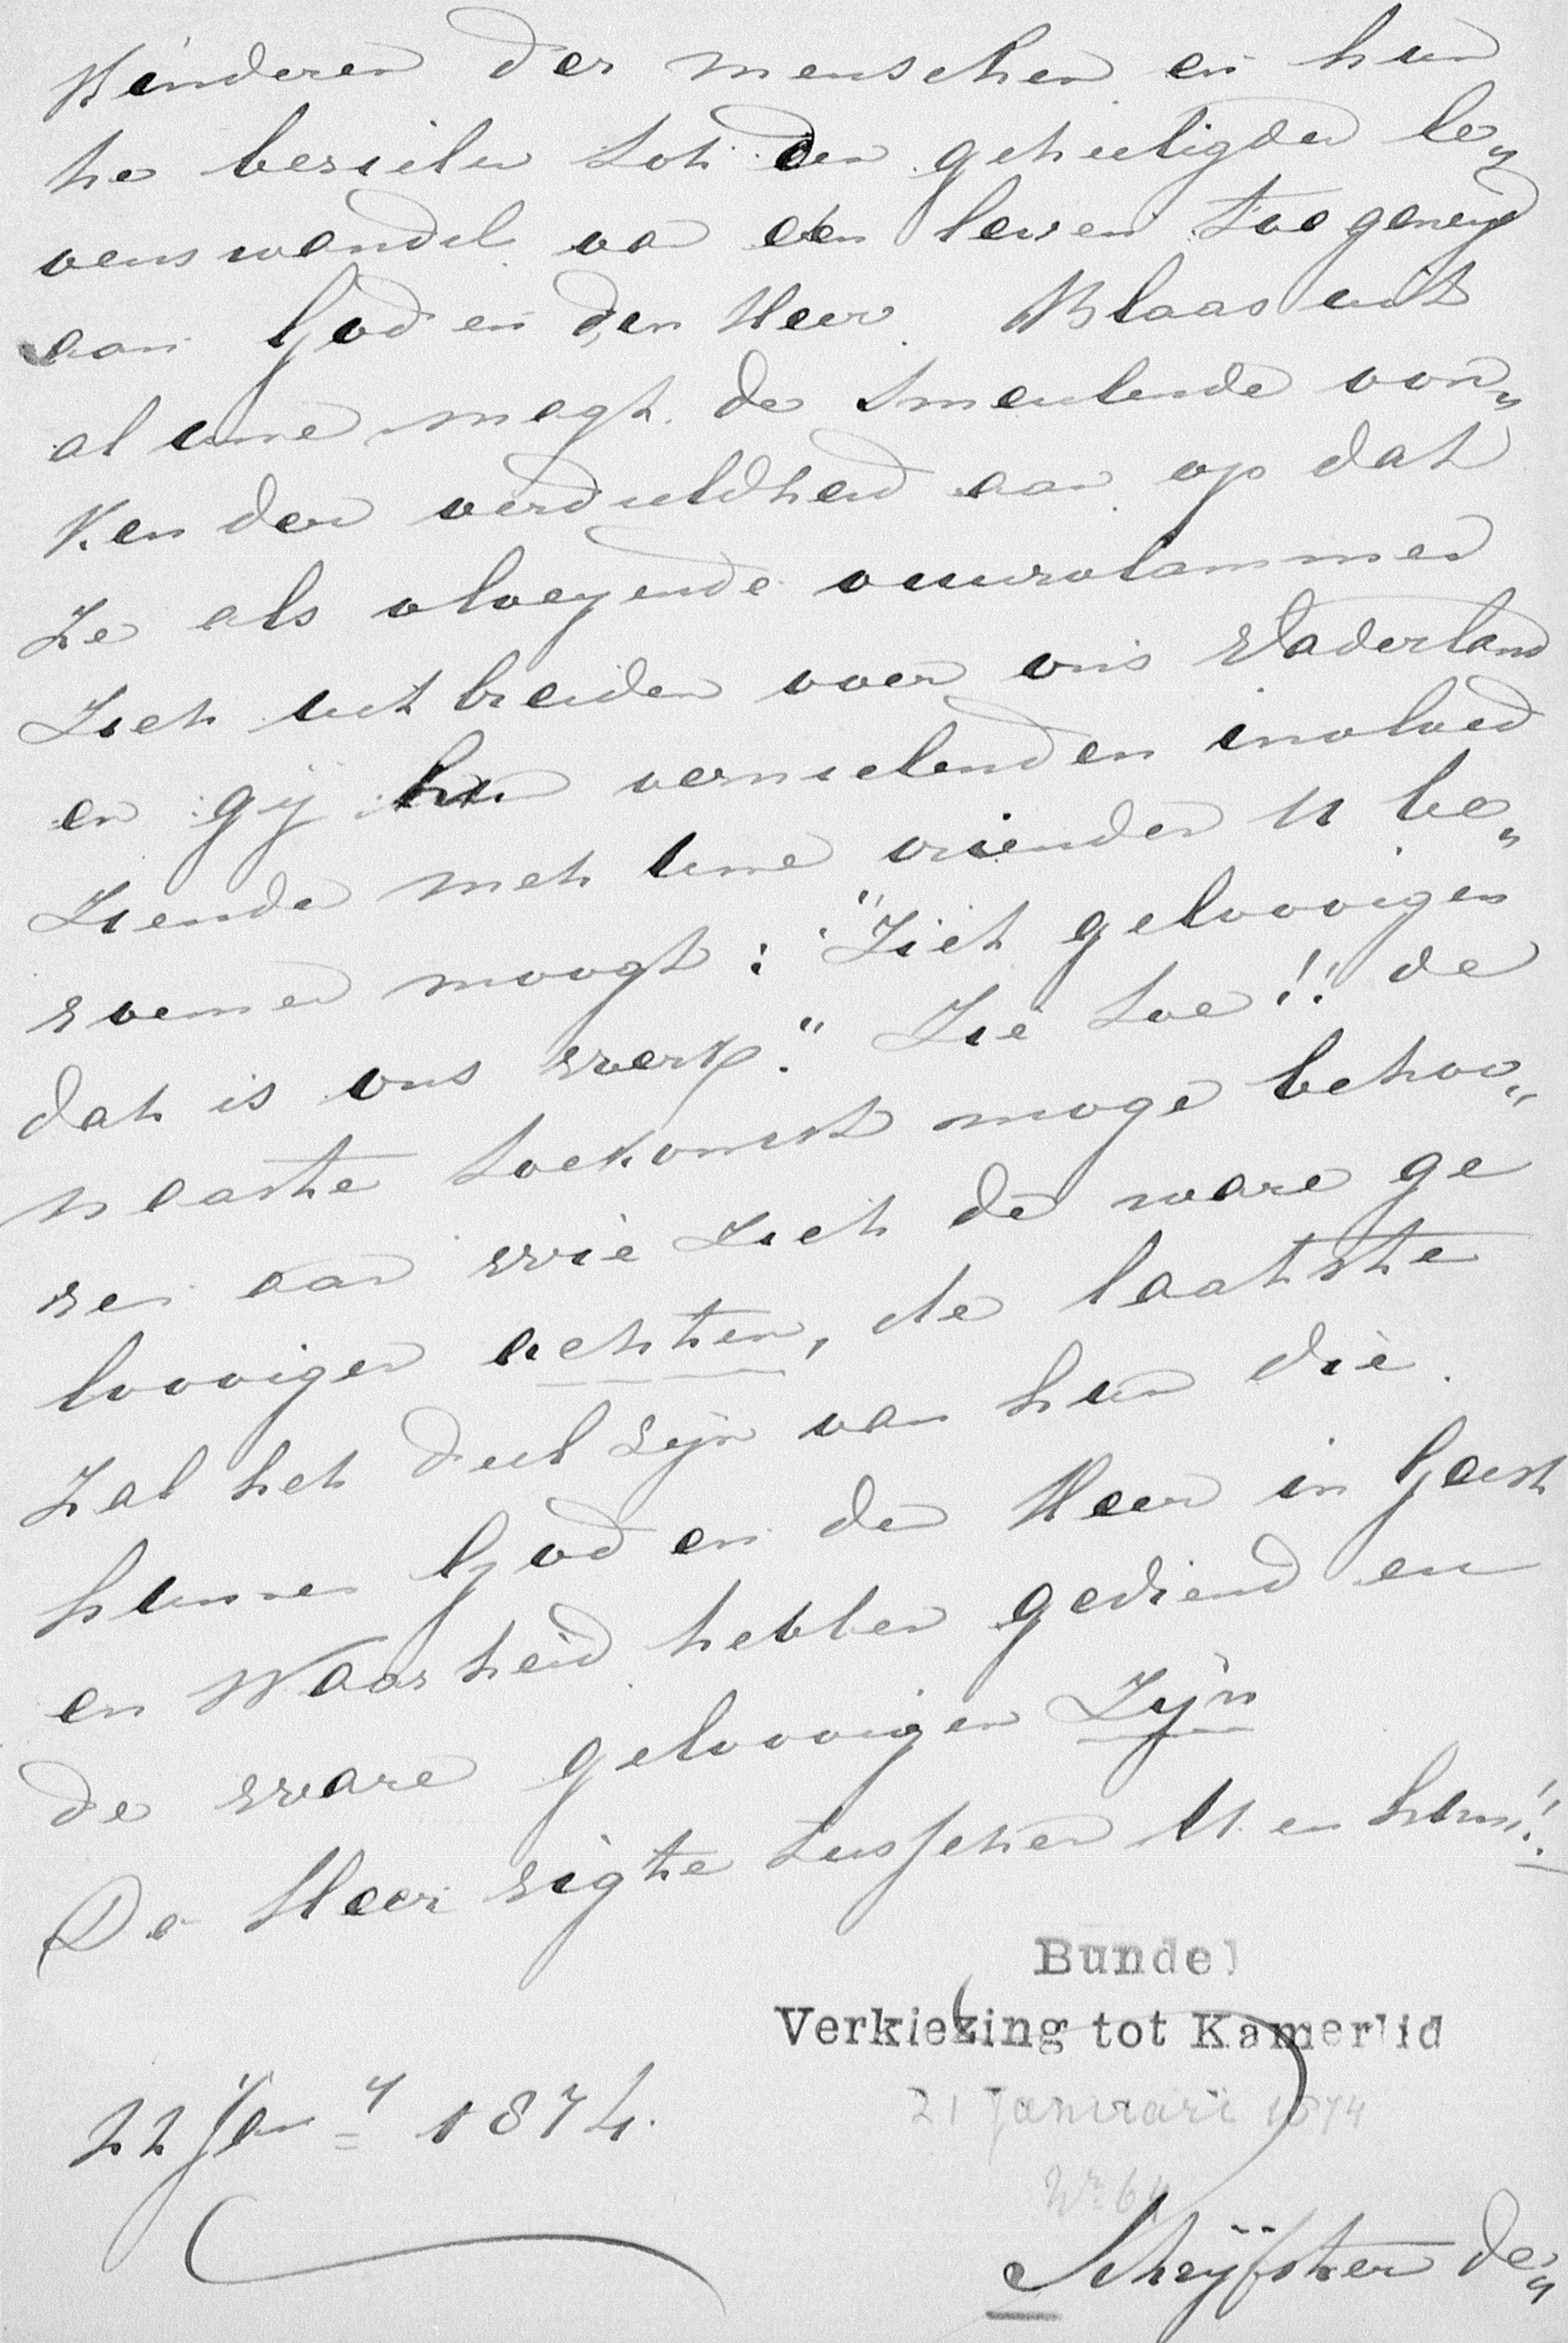 Kinderen der menschen en hun
te bezielen tot den geheiligden le„
venswandel van een leven toegewijd
aan God en den Heer. Blaas uit
al uwe magt de smeulende von„
ken der verduldheid aan op dat
ze als vloeyende vuurvlammen
zich uitbreiden over ons Vaderland
en gij hun vernielenden invloed
ziende met uwe vrienden U be„
roemen moogt: "Ziet geloovigen
dat is ons werk." Zie toe!! de
naaste toekomst moge behoo„
ren aan wie zich de ware ge
loovigen achten, de laatste
zal het deel zijn van hen die
hunnen God en den Heer in Geest
en Waarheid hebben gediend en
de ware geloovigen zijn
De Heer rigte tusschen U en hun!!
Bundel
Verkiezing tot Kamerlid
21 Januari 1874
22 Jan y 1874.
Nr. 64
Schrijfster de„